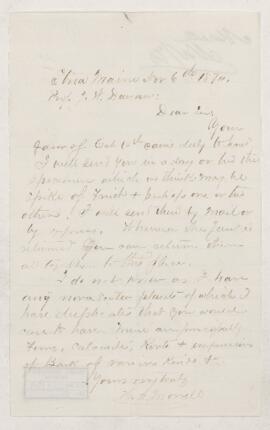 Etna Maine Nov 6th 1870.
Prof. J. W. Dawson:
Dear Sir,
Your
favor of Oct 10th came duly to hand
I will send you in a day or two the
specimen which I think may be
spike of fruit & perhaps one or two
others. I will send them by mail or
by express. Whenever the fruit is
returned you can return them
all together to this place.
I do not know as I have
any nova scotia plants of which I
have duplicates that you would
care to have. Mine are principally
Ferns, Calamites, Roots & impressions
of Bark of various kinds &c
Yours very truly
Morrell